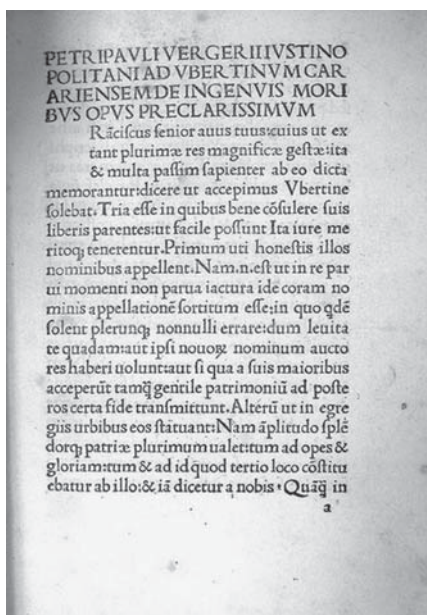 PETRI PAVLI VERGERII IVSTINO
POLITANI AD VBERTINVM CAR
ARIENSEM DE INGENVIS MORI
BVS OPVS PRECLARISSIMVM
Rãciſcus ſenior auus tuus:cuius ut ex
tant plurimæ res magnificæ geſtæ:ita
& multa paſſim ſapienter ab eo dicta
memorantur:dicere ut accepimus Vbertine
ſolebat. Tria eſſe in quibus bene cõſulere ſuis
liberis parentes:ut facile poſſunt Ita iure me
ritoq; tenerentur. Primum uti honeſtis illos
nominibus appellent. Nam.n.eſt ut in re par
ui momenti non parua iactura idẽ coram no
minis appellationẽ ſortitum eſſe:in quo qdẽ
ſolent plerunq; nonnulli errare:dum leuita
te quadam:aut ipſi nouoꝝ nominum aucto
res haberi uolunt:aut ſi qua a ſuis maioribus
acceperũt tamq̃ gentile patrimoniũ ad poſte
ros certa fide tranſmittunt. Alterũ ut in egre
giis urbibus eos ſtatuant:Nam ãplitudo ſplẽ
dorq; patriæ plurimum ualet:tum ad opes &
gloriam:tum & ad id quod tertio loco cõſtitu
ebatur ab illo:& iã dicetur a nobis. Quãq̃ in
a